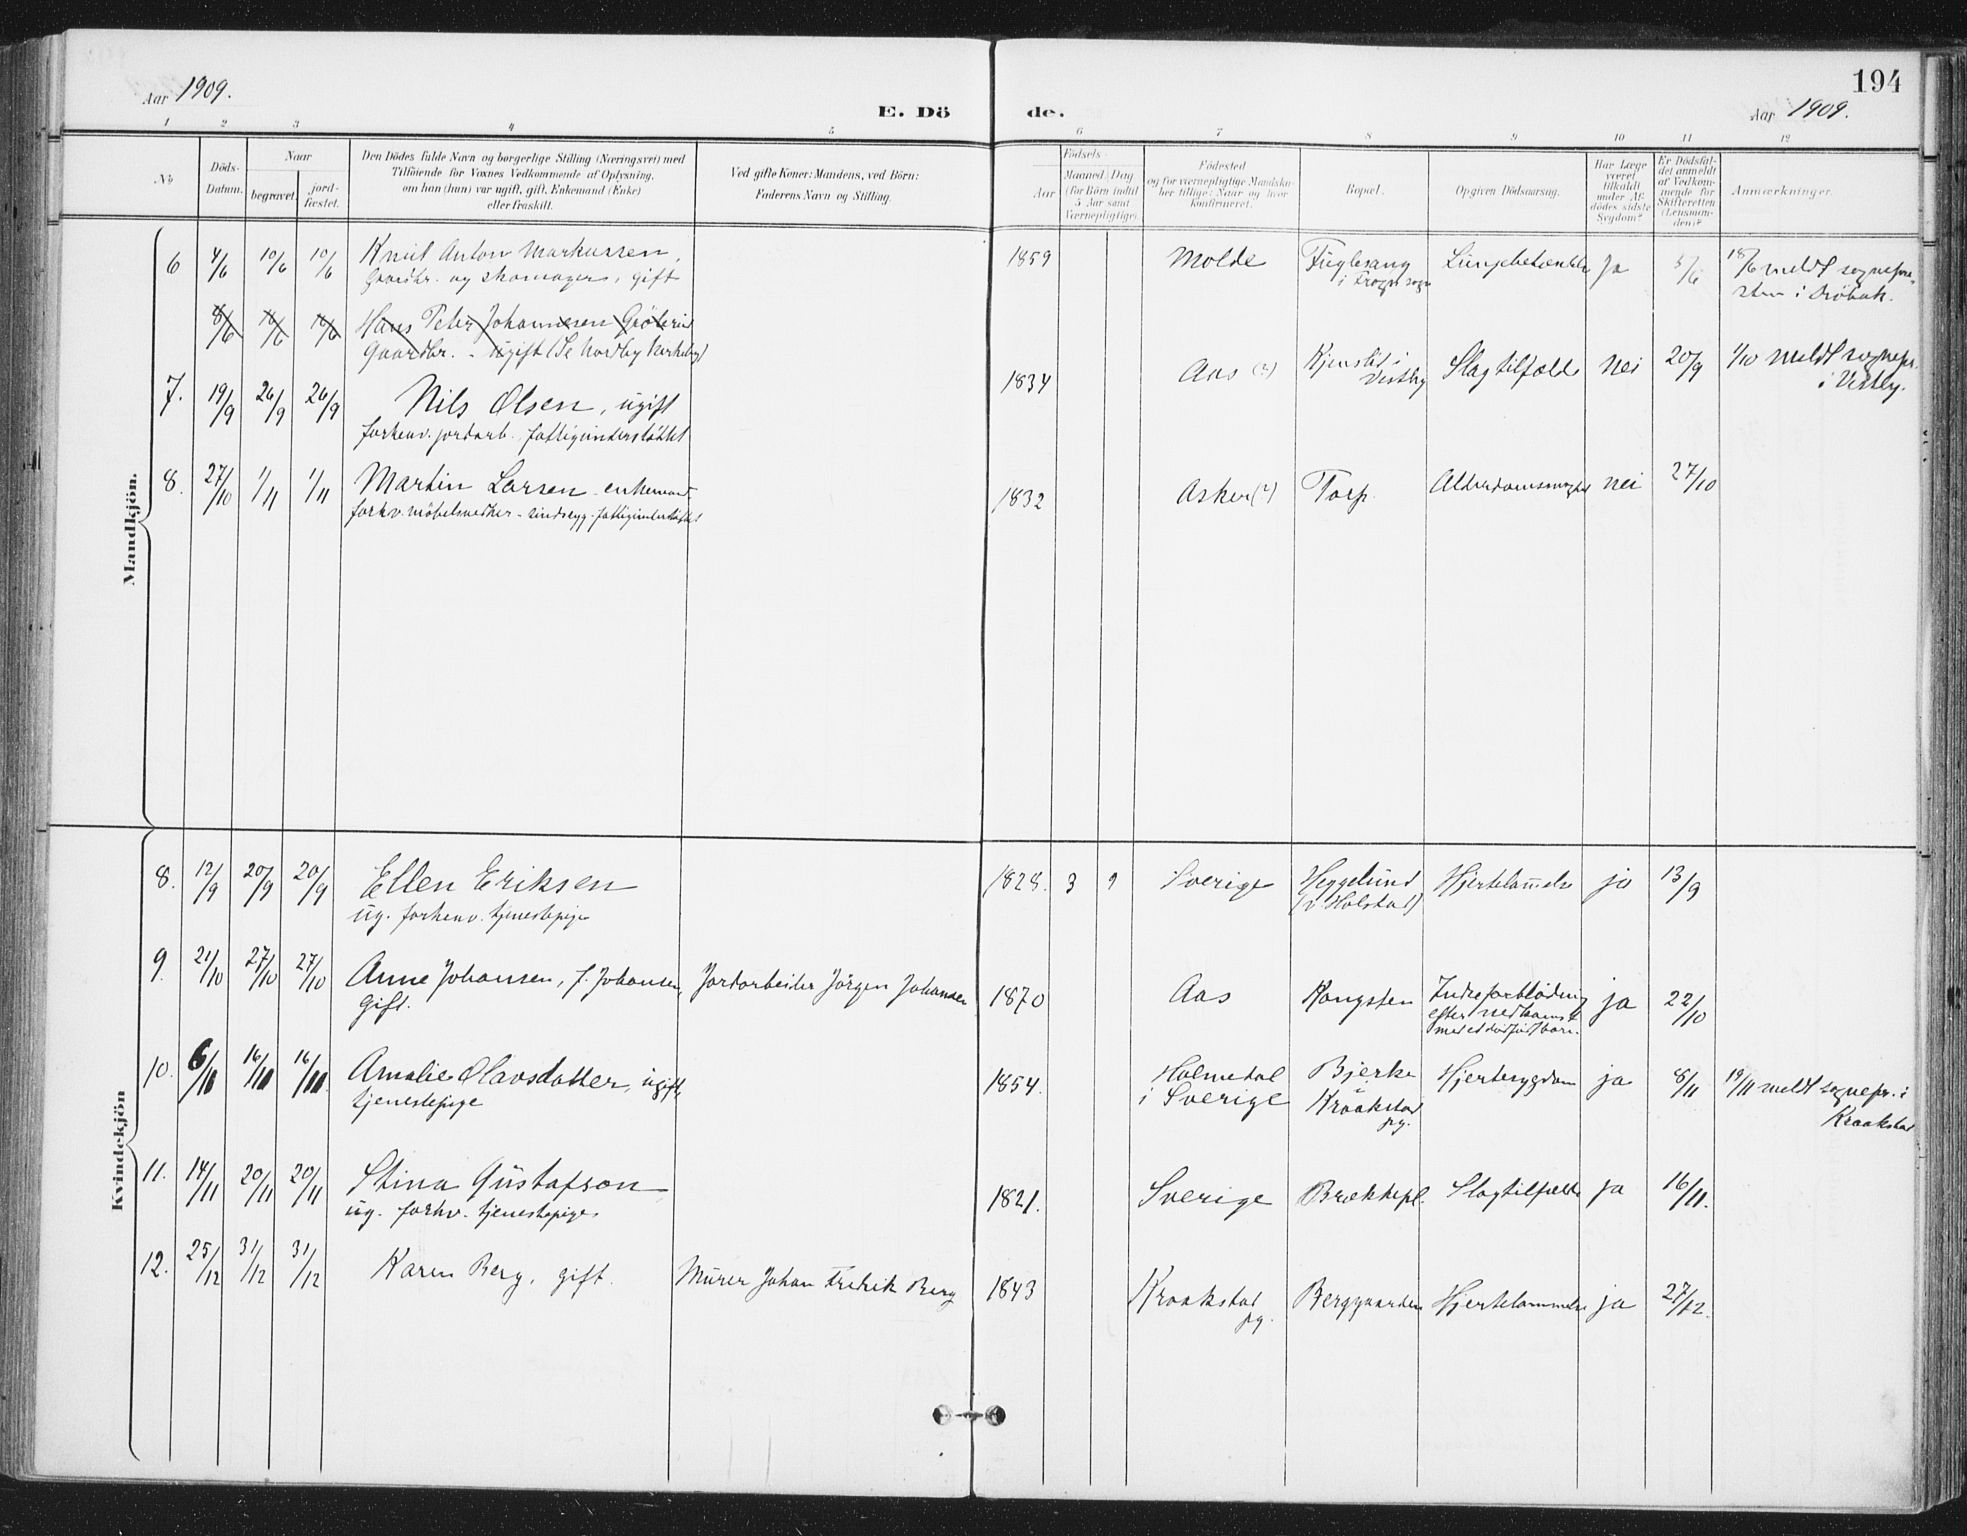 194
Aar 1909.
E. Dö de.
Aar 1909.
1 2 3 4 5 6 7 8 9 10 11 12
No
Döds-Datum.
Naar
begravet.
jord-fæstet.
Den Dödes fulde Navn og borgerlige Stilling (Næringsvei) med
Tilföiende for Voxnes Vedkommende af Oplysning,
om han (hun) var ugift, gift, Enkemand (Enke)
eller fraskilt.
Ved gifte Koner: Mandens, ved Börn:
Faderens Navn og Stilling.
Födsels-
Aar
Maaned. Dag
(for Börn indtil
5 Aar samt
Værnepligtige).
Födested
og for værnepligtige Mandskaber tillige: Naar og hvor
konfirmeret.
Bopæl.
Opgiven Dödsaarsag.
Har Læge
været
tilkaldt
under Afdödes sidste
Sygdom?
Er Dödsfaldet anmeldt
af Vedkommende for
Skifteretten
(Lensmanden)?
Anmærkninger.
Mandkjön.
6 4/6 10/6 10/6 Knut Anton Markussen, 1859 Molde Fuglesang Lungebetændelse ja 5/6 18/6 meldt sognepre-
Gaardbr. og skomager, gift i Frogn sogn sten i Drøbak.
8/6 16/6 16/6 Hans Peter Johannesen
Gaardbr. - ugift (Se Nordby kirkebog)
7. 19/9 26/9 26/9 Nils Olsen, ugift 1834 Aas (?) Kjenslid i Vestby Slagtilfælde nei 20/9 1/10 meldt sognepr.
i Vestby.
forhenv. jordarb., fattigunderstøttet
8. 27/10 1/11 1/11 Martin Larsen - enkemand 1832 Asker (?) Torp. Alderdomssvaghed nei 27/10
forhv. möbelsnedker - sindssyg - fattigunderstøttet
Kvindekjön
8. 12/9 20/9 20/9 Ellen Eriksen 1828. 3 9 Sverige Heggelund Hjertelammelse ja 13/9
ug. forhenv. tjenestepige (v. Holstad)
9. 21/10 27/10 27/10 Anne Johansen, f. Johansen, Jordarbeider Jörgen Johansen 1870 Aas Kongsten Indre forblødning ja 22/10
gift. efter nedkomst
med et dødfødt barn.
10. 6/11 16/11 16/11 Amalie Olavsdatter, ugift, 1854. Holmedal Bjerke Hjertesygdom ja 8/11 19/11 meldt sognepr. i
tjenestepige i Sverige i Kraakstad Kraakstad
pg.
11. 14/11 20/11 20/11 Stina Gustafson 1821. Sverige Brækkepl. Slagtilfælde ja 16/11.
ug. forhv. tjenestepige
12. 25/12 31/12 31/12 Karen Berg, gift. Murer Johan Fredrik Berg 1843 Kraakstad Berggaarden Hjertelammelse ja 27/12.
pg.